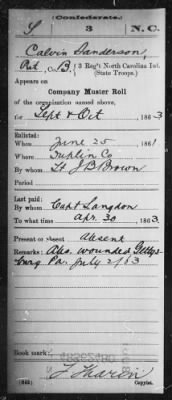 (Confederate.)
S 3 N.C.
Calvin Sanderson,
Pvt, Co. B, 3 Reg't North Carolina Inf.
(State Troops.)
Appears on
Company Muster Roll
of the organization named above,
for Sept & Oct, 1863
Enlisted:
When June 25, 1861
Where Duplin Co
By whom Lt J B Brown
Period
Last paid:
By whom Capt Langdon
To what time Apr. 30, 1863.
Present or absent Absent
Remarks: Abs. wounded Gettys-
burg Pa. July 2/63
Book mark:
(642)
Copyist.